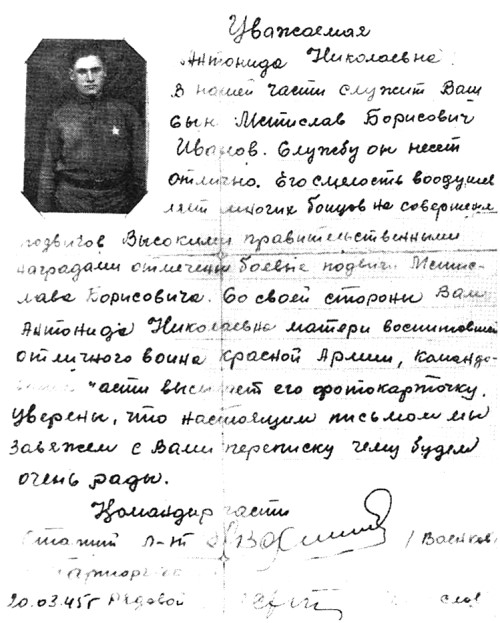 Уважаемая
Антонида Николаевна
В нашей части служит Ваш
сын Мстислав Борисович
Иванов. Службу он несет
отлично. Его смелость воодушев
ляет многих бойцов на совершение
подвигов Высокими правительственными
наградами отмечены боевые подвиги Мстис-
лава Борисовича. Со своей стороны Вам
Антонида Николаевна матери воспитавшей
отличного воина Красной Армии, командо-
части высылает его фотокарточку.
Уверены, что настоящим письмом мы
завяжем с Вами переписку чему будем
очень рады.
Командир части
л-нт
20.03.45г Рядовой